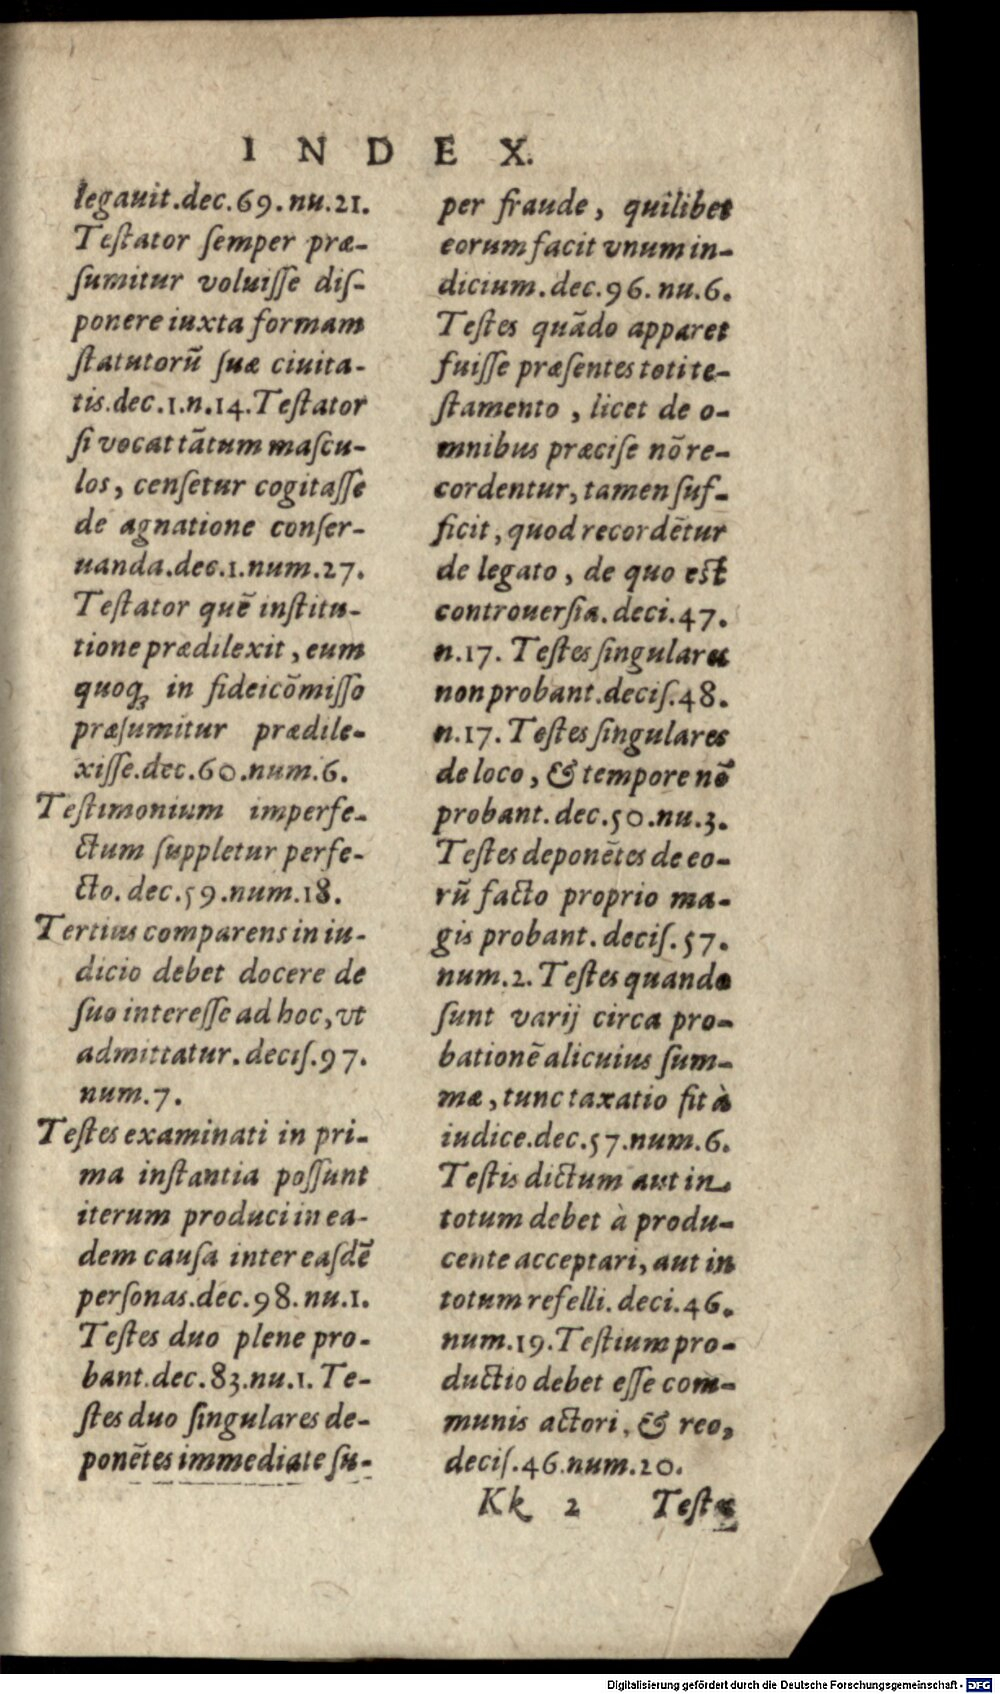 INDEX.
legauit.dec.69.nu.21.
Testator semper præ-
sumitur voluisse dis-
ponere iuxta formam
statutorū suæ ciuita-
tis.dec.1.n.14.Testator
si vocat tātum mascu-
los, censetur cogitasse
de agnatione conser-
uanda.dec.1.num.27.
Testator quē institu-
tione prædilexit, eum
quoqꝫ in fideicōmisso
præsumitur prædile-
xisse.dec.60.num.6.
Testimonium imperfe-
ctum suppletur perfe-
cto. dec.59.num.18.
Tertius comparens in iu-
dicio debet docere de
suo interesse ad hoc, vt
admittatur. decis.97.
num.7.
Testes examinati in pri-
ma instantia possunt
iterum produci in ea-
dem causa inter easdē
personas.dec.98.nu.1.
Testes duo plene pro-
bant.dec.83.nu.1. Te-
stes duo singulares de-
ponētes immediate su-
per fraude, quilibet
eorum facit vnum in-
dicium.dec.96.nu.6.
Testes quādo apparet
fuisse præsentes toti te-
stamento, licet de o-
mnibus præcise nō re-
cordentur, tamen suf-
ficit, quod recordētur
de legato, de quo est
controuersia. deci.47.
n.17. Testes singulares
non probant.decis.48.
n.17. Testes singulares
de loco, & tempore nō
probant. dec.50.nu.3.
Testes deponētes de eo-
rū facto proprio ma-
gis probant. decis.57.
num.2. Testes quando
sunt varij circa pro-
bationē alicuius sum-
mæ, tunc taxatio fit à
iudice.dec.57.num.6.
Testis dictum aut in
totum debet à produ-
cente acceptari, aut in
totum refelli. deci.46.
num.19. Testium pro-
ductio debet esse com-
munis actori, & reo,
decis.46.num.20.
Kk 2 Testes
Digitalisierung gefördert durch die Deutsche Forschungsgemeinschaft - DFG